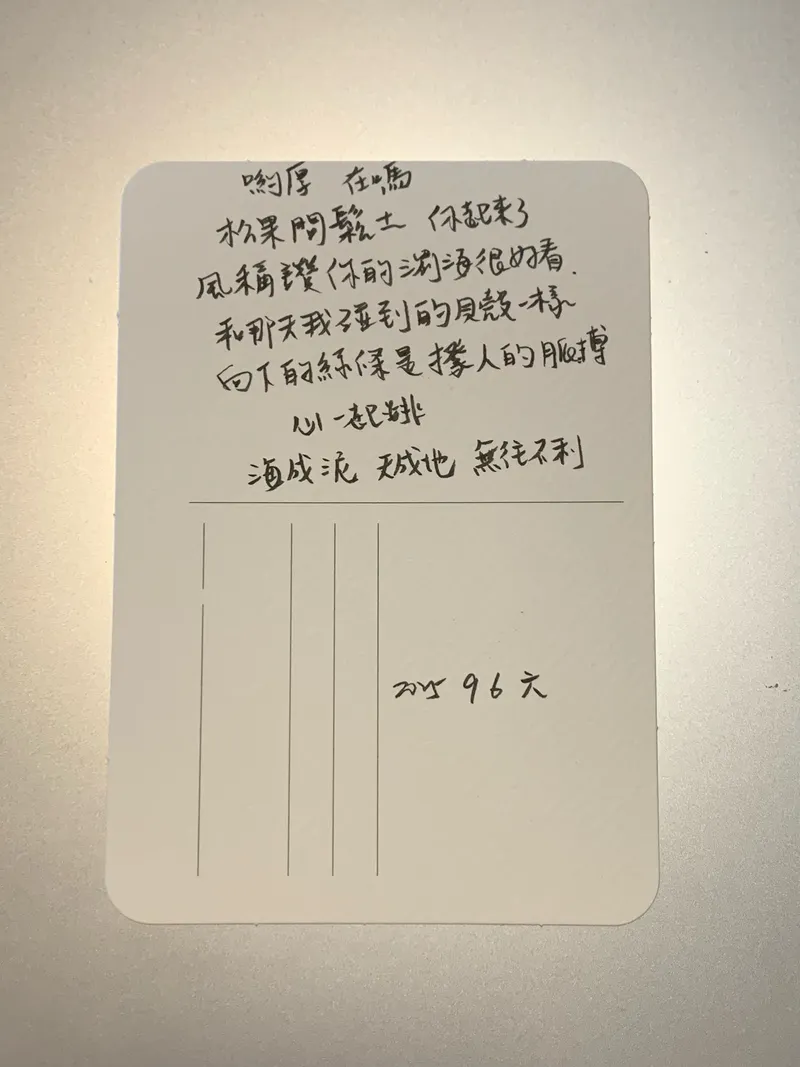 喲厚 在嗎
松果問鬆土 你起來了
風稱讚你的瀏海很好看.
和那天我碰到的貝殼一樣
向下的絲條是撐人的脈搏
心一起排
海成泥 天成地 無往不利
2025 9 6 六